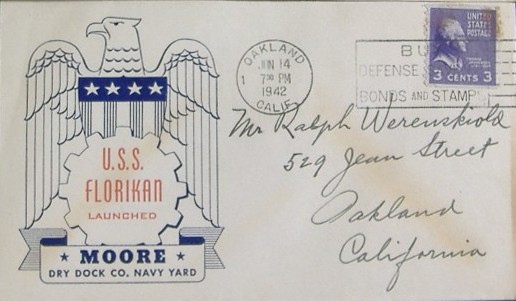 U.S.S.
FLORIKAN
LAUNCHED
MOORE
DRY DOCK CO. NAVY YARD
OAKLAND
1
JUN 14
7 30 PM
1942
CALIF.
BU
DEFENSE
BONDS AND STAMPS
UNITED
STATES
POSTAGE
3 CENTS 3
Mr Ralph Werenskiold
529 Jean Street
Oakland
California